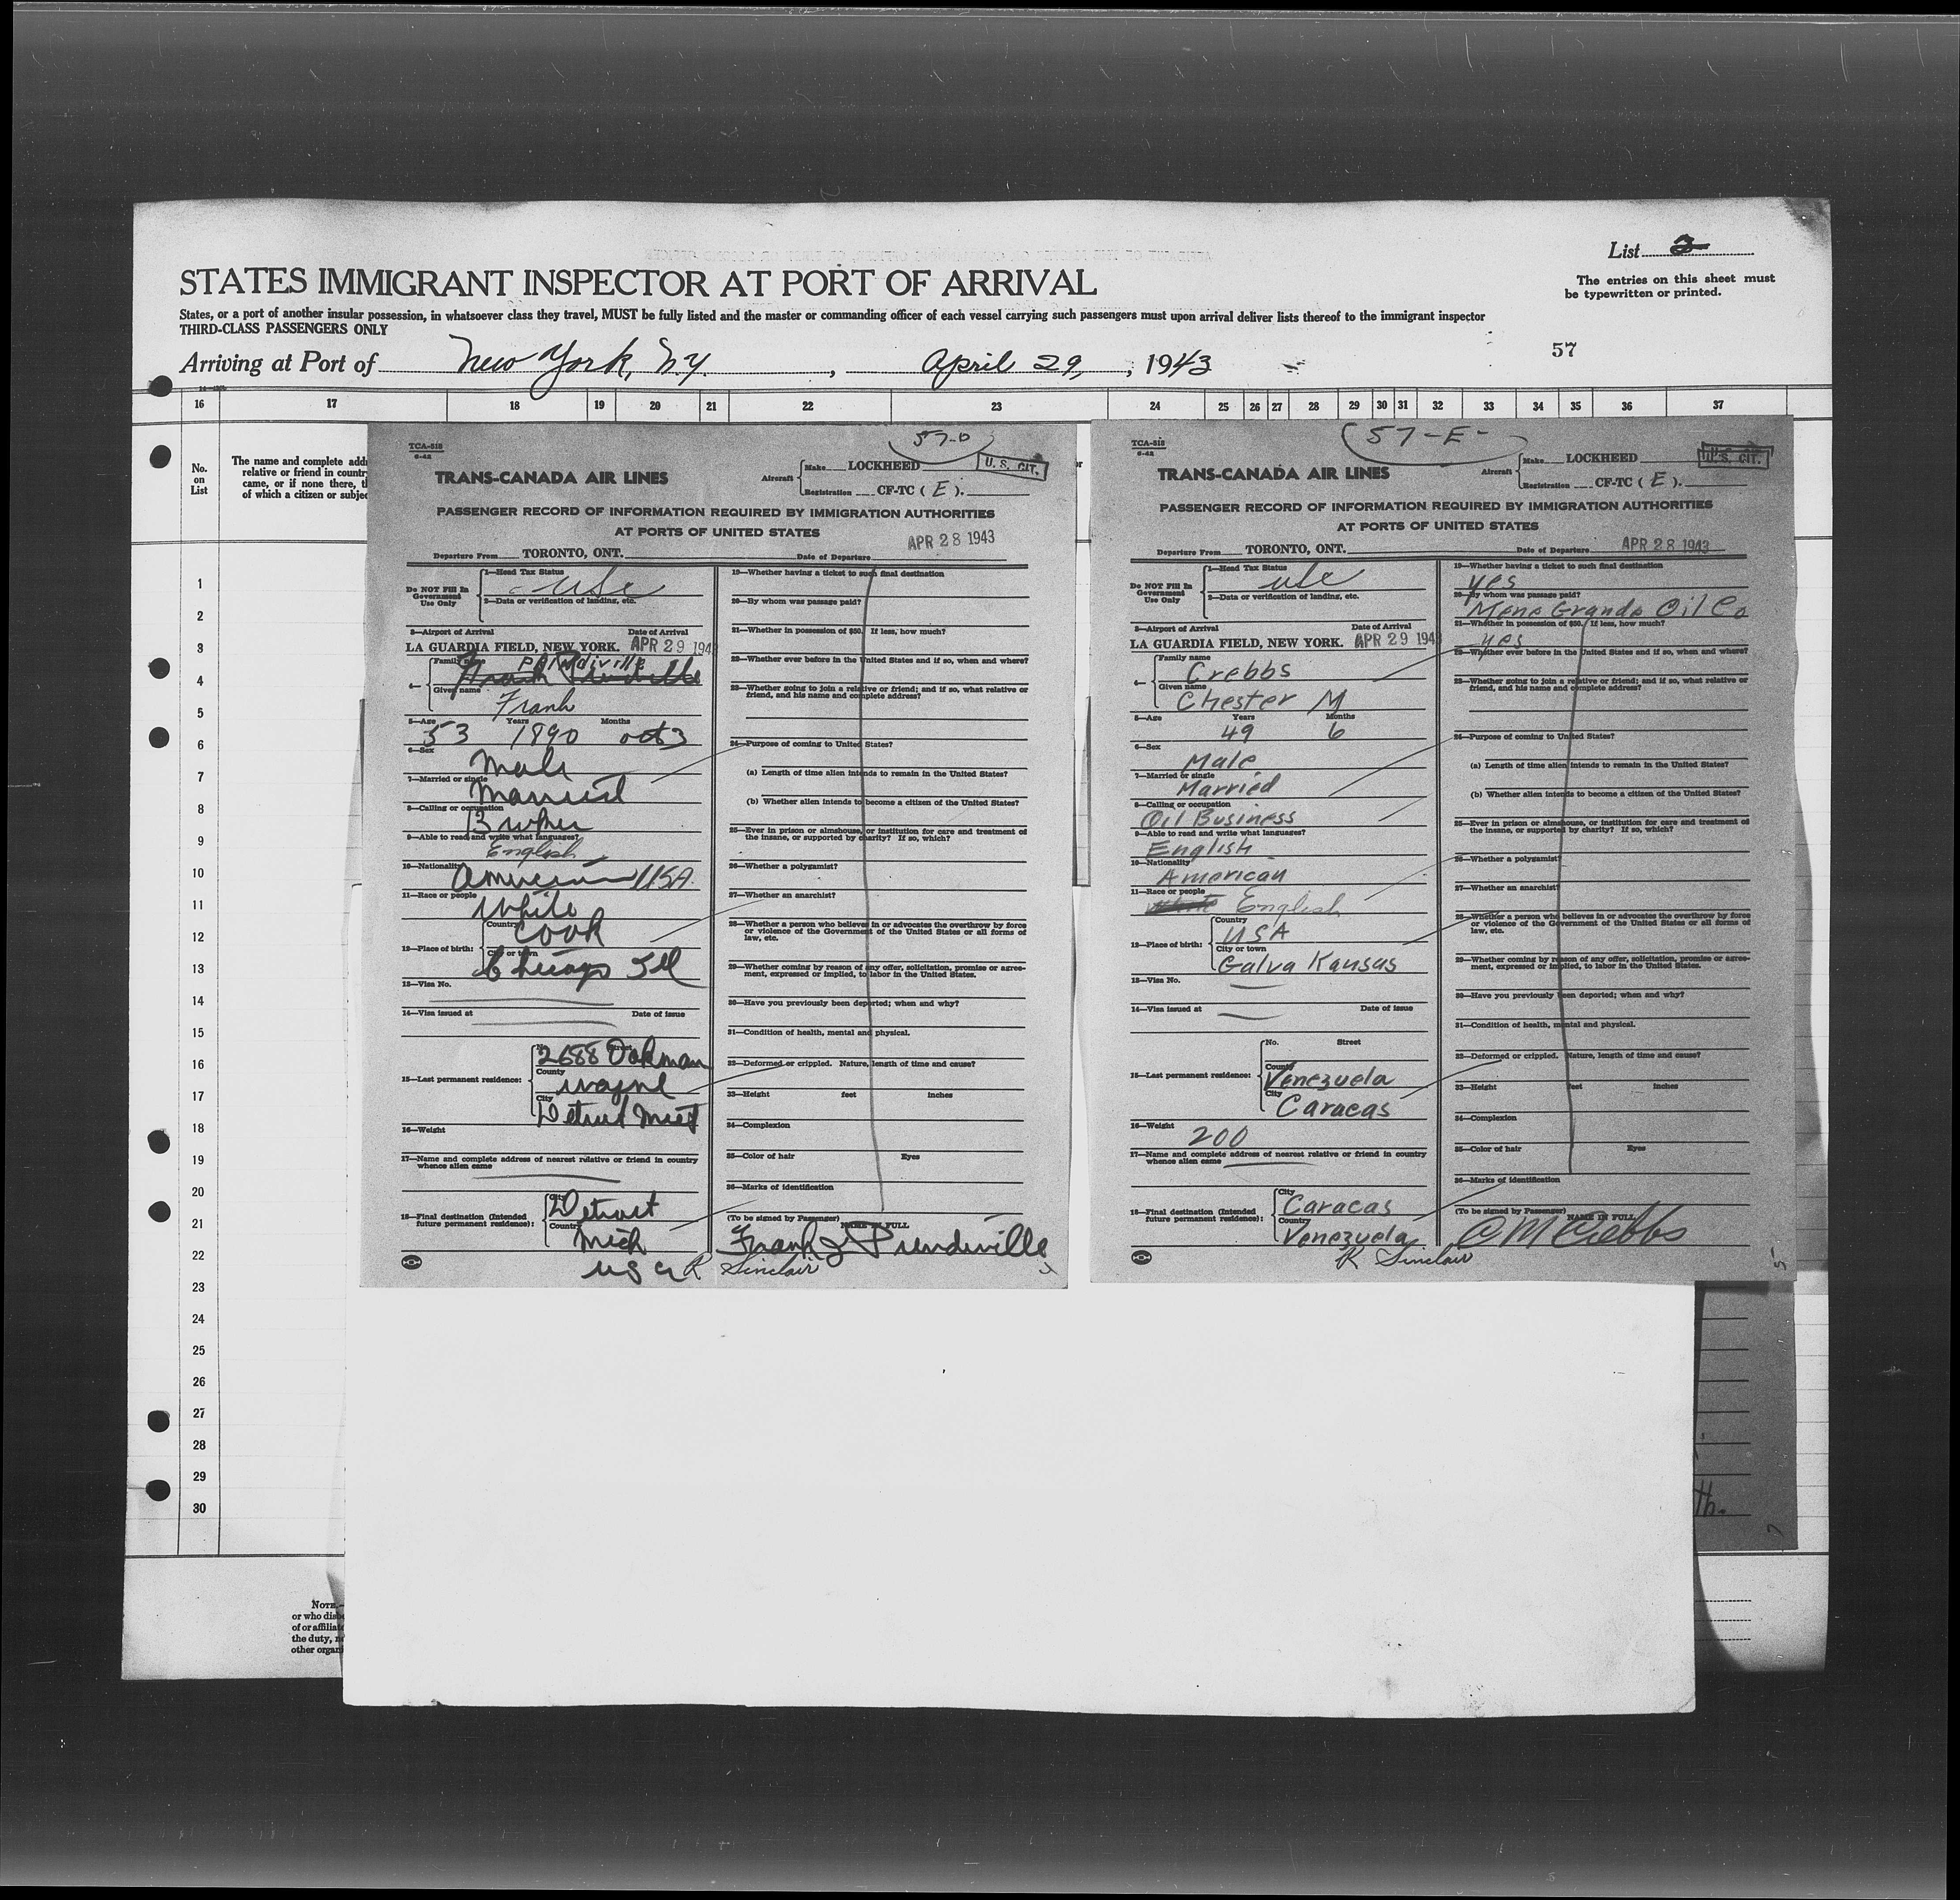 List 2
The entries on this sheet must
be typewritten or printed.
STATES IMMIGRANT INSPECTOR AT PORT OF ARRIVAL
States, or a port of another insular possession, in whatsoever class they travel, MUST be fully listed and the master or commanding officer of each vessel carrying such passengers must upon arrival deliver lists thereof to the immigrant inspector
THIRD-CLASS PASSENGERS ONLY
57
Arriving at Port of New York, N.Y. , April 29, , 1943
16 17 18 19 20 21 22 23 24 25 26 27 28 29 30 31 32 33 34 35 36 37
No.
on
List
The name and complete add
relative or friend in countr
came, or if none there, t
of which a citizen or subje
1
2
3
4
5
6
7
8
9
10
11
12
13
14
15
16
17
18
19
20
21
22
23
24
25
26
27
28
29
30
NOTE.—
or who disb
of or affiliat
the duty, n
other organi
TCA-318
6-42
57-D
TRANS-CANADA AIR LINES
Aircraft Make LOCKHEED
U. S. CIT.
Registration CF-TC ( E ).
PASSENGER RECORD OF INFORMATION REQUIRED BY IMMIGRATION AUTHORITIES
AT PORTS OF UNITED STATES
Departure From TORONTO, ONT. Date of Departure APR 28 1943
Do NOT Fill In
Government
Use Only
1—Head Tax Status
usc
2—Data or verification of landing, etc.
3—Airport of Arrival Date of Arrival
LA GUARDIA FIELD, NEW YORK. APR 29 194
4— Family name
Frank Prendiville
Given name Frank
5—Age Years Months
53 1890 oct 3
6—Sex Male
7—Married or single Married
8—Calling or occupation
9—Able to read and write what languages?
English
10—Nationality American USA.
11—Race or people White
12—Place of birth: Country Cook
City or town Chicago Ill
13—Visa No.
14—Visa issued at Date of issue
15—Last permanent residence: No. Street 2688 Oakman
County Wayne
City Detroit Mich
16—Weight
17—Name and complete address of nearest relative or friend in country
whence alien came
18—Final destination (Intended
future permanent residence): City Detroit
Country Mich
USA
19—Whether having a ticket to such final destination
20—By whom was passage paid?
21—Whether in possession of $50. If less, how much?
22—Whether ever before in the United States and if so, when and where?
23—Whether going to join a relative or friend; and if so, what relative or
friend, and his name and complete address?
24—Purpose of coming to United States?
(a) Length of time alien intends to remain in the United States?
(b) Whether alien intends to become a citizen of the United States?
25—Ever in prison or almshouse, or institution for care and treatment of
the insane, or supported by charity? If so, which?
26—Whether a polygamist?
27—Whether an anarchist?
28—Whether a person who believes in or advocates the overthrow by force
or violence of the Government of the United States or all forms of
law, etc.
29—Whether coming by reason of any offer, solicitation, promise or agree-
ment, expressed or implied, to labor in the United States.
30—Have you previously been deported; when and why?
31—Condition of health, mental and physical.
32—Deformed or crippled. Nature, length of time and cause?
33—Height feet inches
34—Complexion
35—Color of hair Eyes
36—Marks of identification
(To be signed by Passenger) NAME IN FULL
Frank J Prendiville
R Sinclair
TCA-318
6-42
57-E-
TRANS-CANADA AIR LINES
Aircraft Make LOCKHEED
U. S. CIT.
Registration CF-TC ( E ).
PASSENGER RECORD OF INFORMATION REQUIRED BY IMMIGRATION AUTHORITIES
AT PORTS OF UNITED STATES
Departure From TORONTO, ONT. Date of Departure APR 28 1943
Do NOT Fill In
Government
Use Only
1—Head Tax Status
usc
2—Data or verification of landing, etc.
3—Airport of Arrival Date of Arrival
LA GUARDIA FIELD, NEW YORK. APR 29 194
4— Family name Crebbs
Given name Chester M
5—Age Years Months
49 6
6—Sex Male
7—Married or single Married
8—Calling or occupation
Oil Business
9—Able to read and write what languages?
English
10—Nationality American
11—Race or people
White English
12—Place of birth: Country USA
City or town
Galva Kansas
13—Visa No.
14—Visa issued at Date of issue
15—Last permanent residence: No. Street
County Venezuela
City Caracas
16—Weight 200
17—Name and complete address of nearest relative or friend in country
whence alien came
18—Final destination (Intended
future permanent residence): City Caracas
Country Venezuela
19—Whether having a ticket to such final destination
yes
20—By whom was passage paid?
Mene Grande Oil Co
21—Whether in possession of $50. If less, how much?
yes
22—Whether ever before in the United States and if so, when and where?
23—Whether going to join a relative or friend; and if so, what relative or
friend, and his name and complete address?
24—Purpose of coming to United States?
(a) Length of time alien intends to remain in the United States?
(b) Whether alien intends to become a citizen of the United States?
25—Ever in prison or almshouse, or institution for care and treatment of
the insane, or supported by charity? If so, which?
26—Whether a polygamist?
27—Whether an anarchist?
28—Whether a person who believes in or advocates the overthrow by force
or violence of the Government of the United States or all forms of
law, etc.
29—Whether coming by reason of any offer, solicitation, promise or agree-
ment, expressed or implied, to labor in the United States.
30—Have you previously been deported; when and why?
31—Condition of health, mental and physical.
32—Deformed or crippled. Nature, length of time and cause?
33—Height feet inches
34—Complexion
35—Color of hair Eyes
36—Marks of identification
(To be signed by Passenger) NAME IN FULL
C M Crebbs
R Sinclair
5-
th.
7